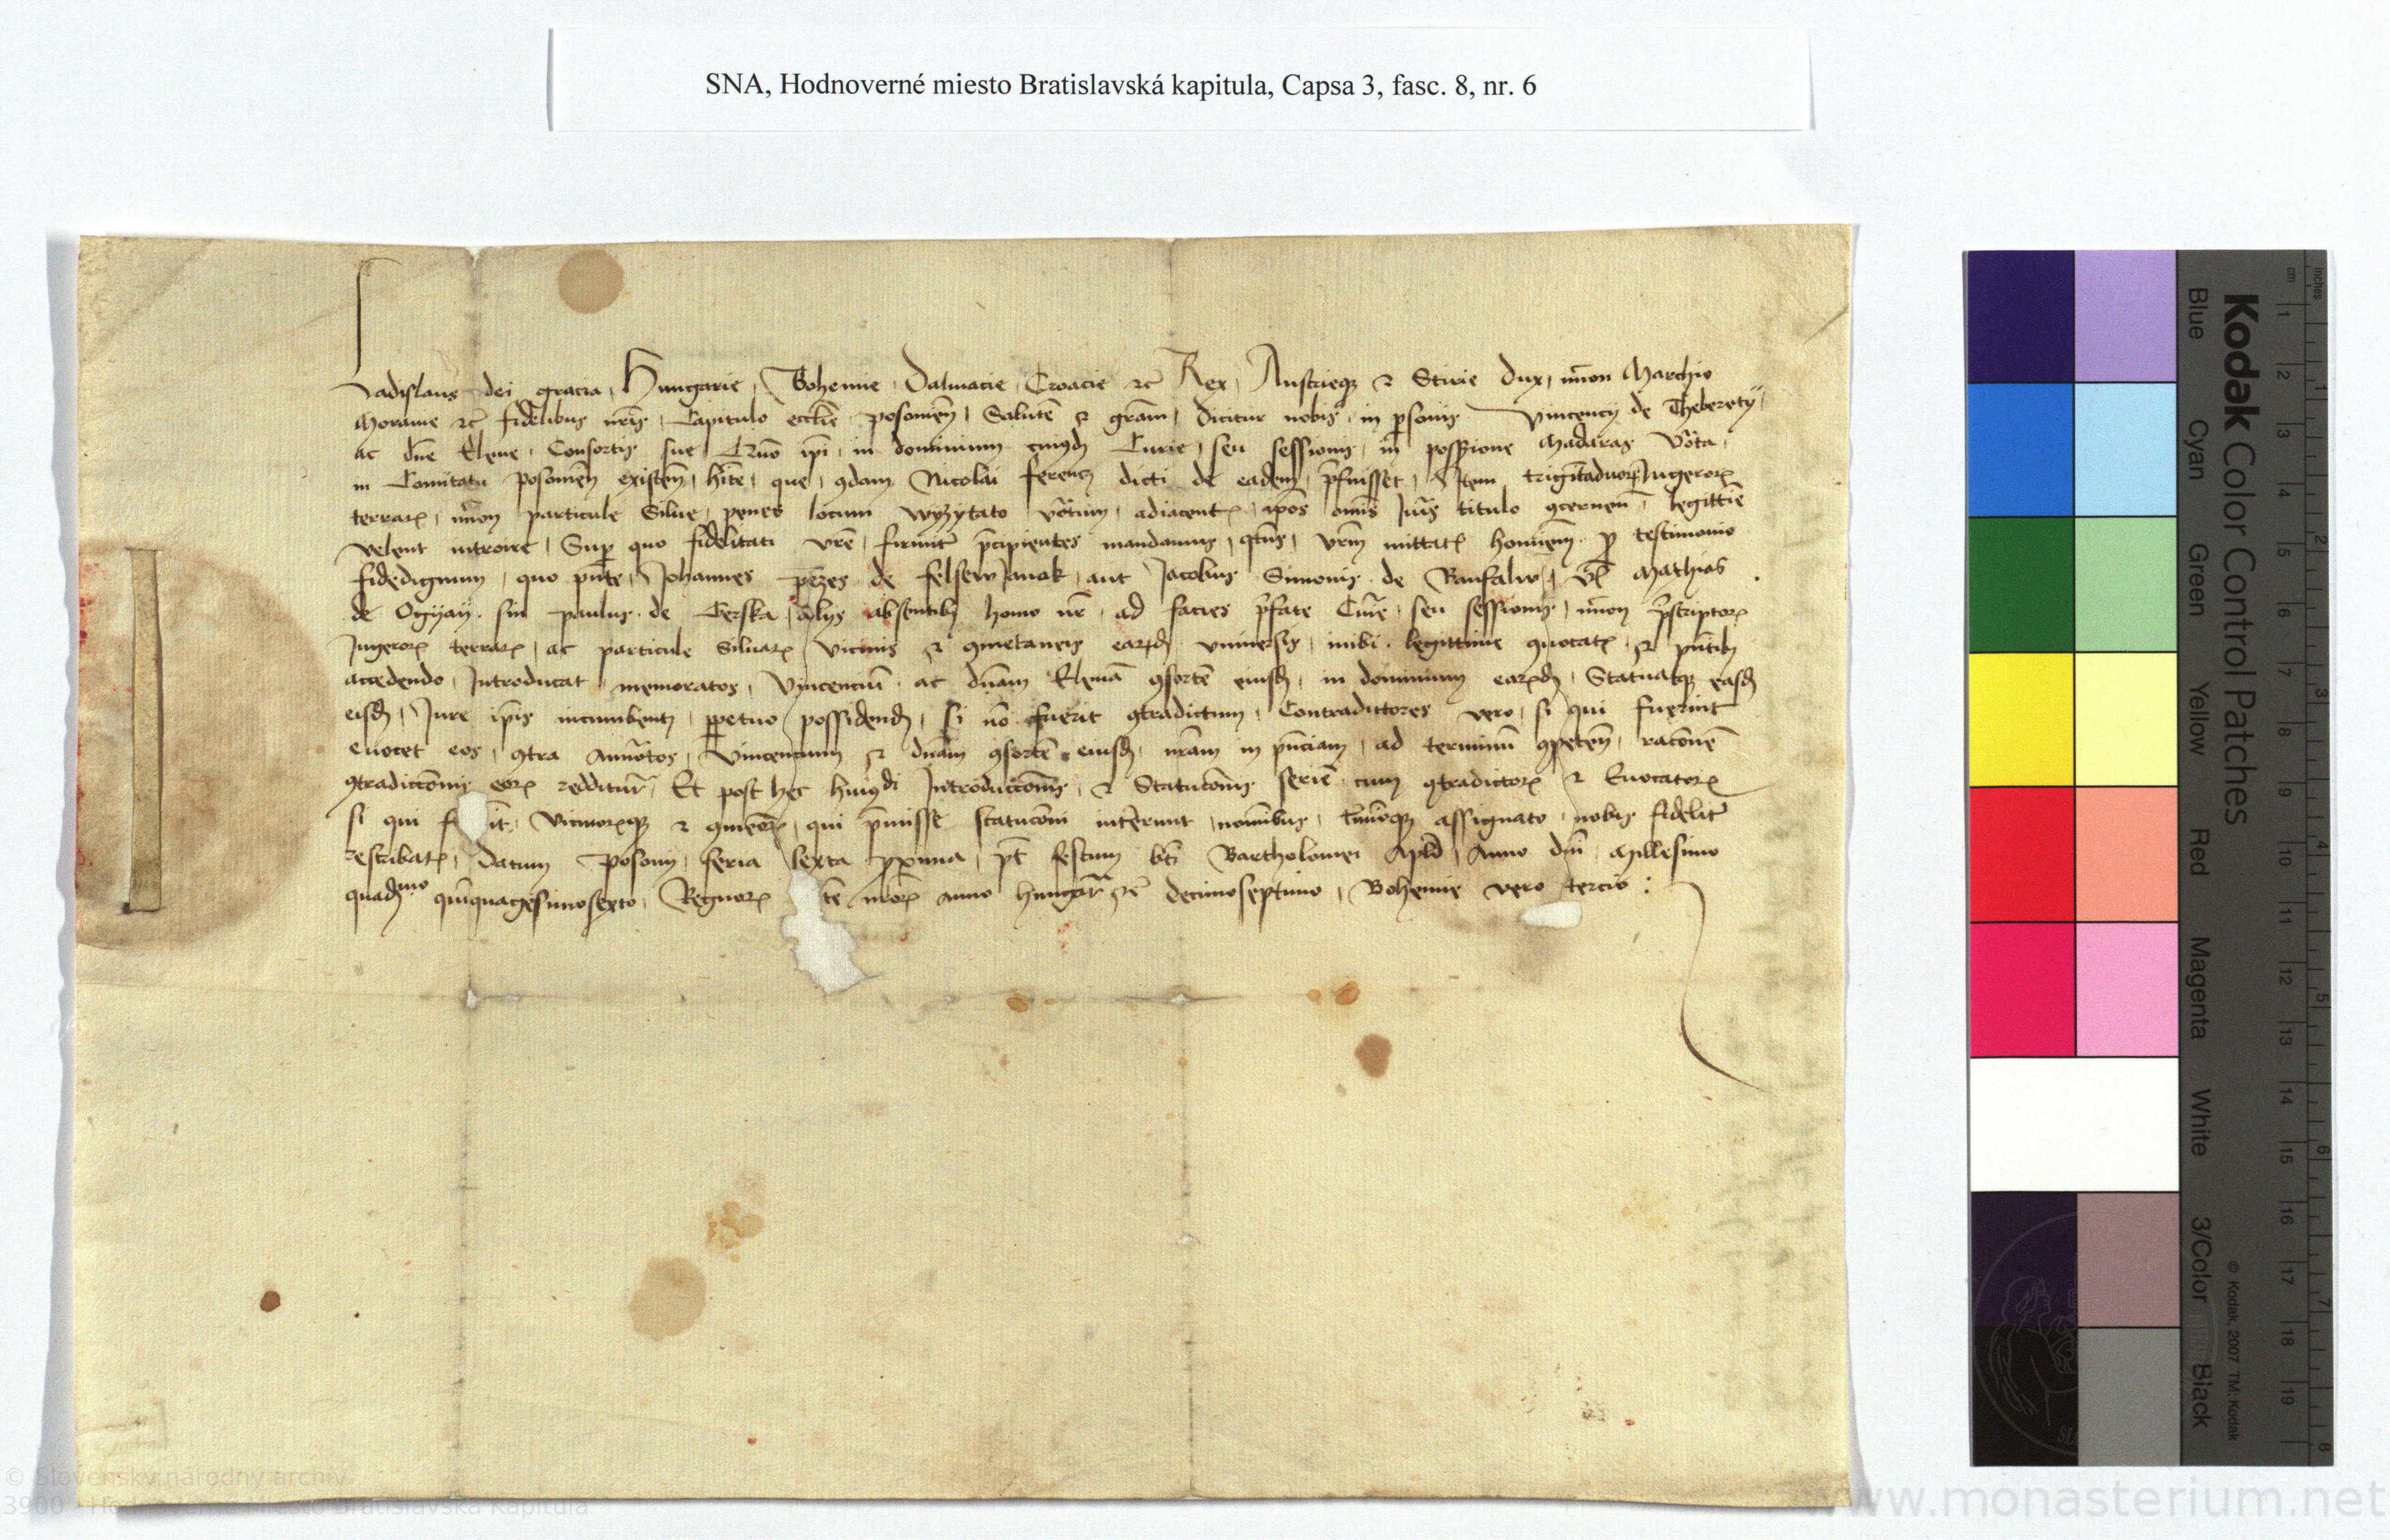 SNA, Hodnoverné miesto Bratislavská kapitula, Capsa 3, fasc. 8, nr. 6
Ladislaus dei gracia Hungarie, Bohemie, Dalmacie, Croacie etc̄ Rex, Austrieqꝫ et Stirie dux, nc̄non Marchio
Morauie etc̄ fidelibus nr̄is, Capitulo eccl̄ie posonien̄, Salutē et gr̄am, dicitur nobis in ꝑsonis Vincencij de Theberethy
ac dn̄e Elene, Consortis sue, Quō ip̄i, in dominium cuiꝰdā Curie, seu sessionis, in possessione Madaras vo͞ta,
in Comitatu posonien̄ existen̄, hīte, que, ꝯdam Nicolai ferencz dicti de eadem, p̄fuisset, Item trigintaduorꝝ Iugerorꝝ
terrarꝝ, nc̄non particule Silue, penes locum wyzytato vo͞tum, adiacent, ap̄os om̄is Iur̄is titulo ꝯcernen̄, legittīe
vellent introire, Suꝑ quo fidelitati vr̄e, firmit̄ p̄cipientes mandamus, qt̄us, vr̄m mittatꝭ hominem ꝓ testimonio
fidedignum, quo pn̄te, Johannes pēzes de felsew Janok, aut Jacobus Simonis de Banfalw, vl̄ Mathias
de Ogyay, sin paulus de Cerska, alijs absentibꝫ homo nr̄, ad facies p̄fate Curie, seu sessionis, nc̄non p̄scriptorꝝ
Iugerorꝝ terrarꝝ, ac particule Siluarꝝ, vicinis et ꝯmetaneis earꝝdē vniuersis, inibi legittime ꝯuocatꝭ, et pn̄tibꝫ
accedendo, Introducat memoratos, Vincenciū ac dn̄am Elenā ꝯsortē eiusdē, in dominium earꝝdē, Statuatqꝫ easdē
eisdē, Iure ip̄is incumbentj, ꝑpetuo possidendē, si nō fuerit ꝯtradictum, Contradictores vero, si qui fuerint
euocet eos, ꝯtra annōtos, Vincencium et dn̄am ꝯsortē eiusdē, nr̄am in pn̄ciam, ad terminū ꝯpeten̄, racōnē
ꝯtradiccōnis eorꝝ redditur̄, Et post hec huiꝰdi Introduccōnis, et Statucōnis seriē cum ꝯtradictorꝝ et Euocatorꝝ
si qui f it, vicinorꝝqꝫ et ꝯmeo͞rꝝ, qui p̄misse statucōni interunt, nominibus, t̄mīoqꝫ assignato, nobis fidelit̄
rescribatꝭ, Datum Posonij, feria sexta ꝓxima, p̄t festum bt̄i Bartholomei Apl̄i, Anno dn̄i Millesimo
quadꝫmo quinquagesimosexto, Regnorꝝ tē nr̄orꝝ anno hungar̄ etc̄ decimoseptimo, Bohemie vero tercio :
Kodak Color Control Patches
Blue Cyan Green Yellow Red Magenta White 3/Color Black
© Kodak, 2007 TM: Kodak
cm 1 2 3 4 5 6 7 8 9 10 11 12 13 14 15 16 17 18 19
inches 1 2 3 4 5 6 7 8
© Slovenský národný archív
3900 - Hodnoverné miesto Bratislavská kapitula
www.monasterium.net